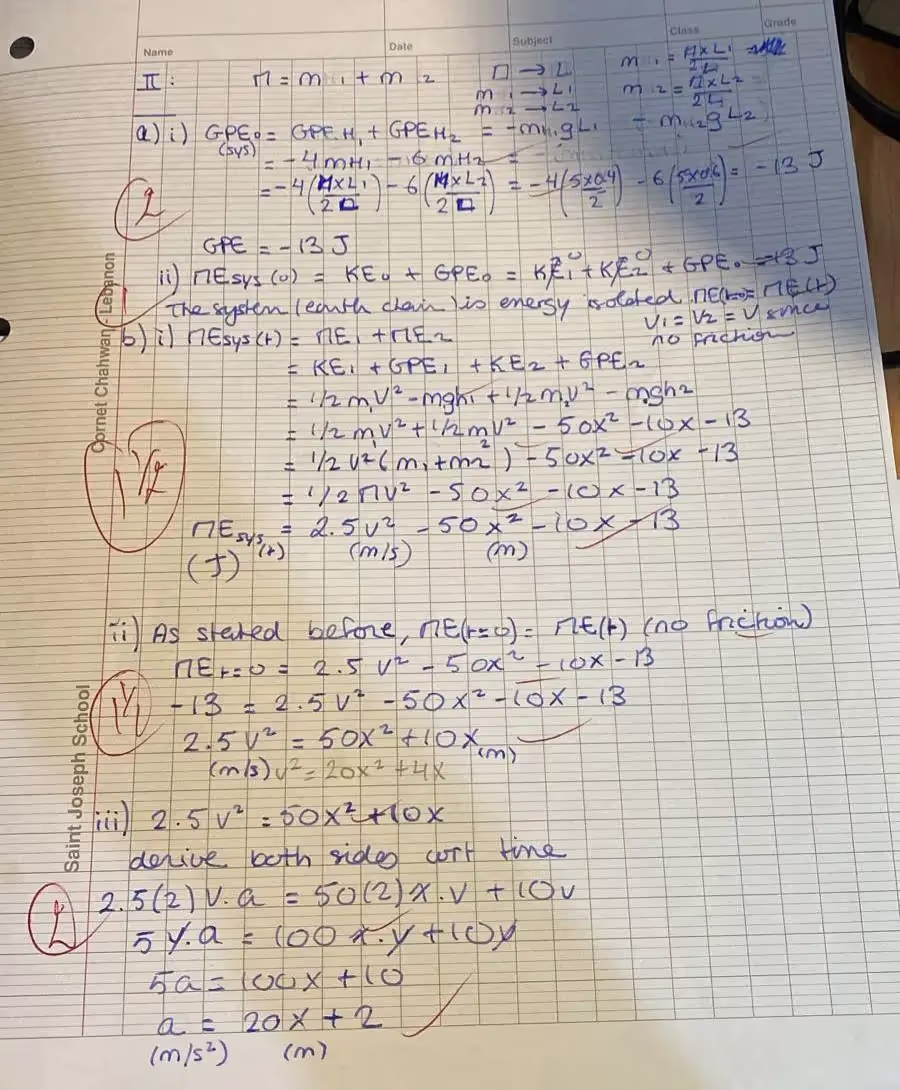 Name Date Subject Class Grade
II: M = m1 + m2
M → L
m1 → L1
m2 → L2
m1 = M×L1/2L
m2 = M×L2/2L
a) i) GPE0 (sys) = GPEH1 + GPEH2 = -mH1gL1 - mH2gL2
= -4mH1 - 6mH2 =
= -4(M×L1/2L) - 6(M×L2/2L) = -4(5×0.4/2) - 6(5×0.6/2) = -13 J
2
GPE = -13 J
ii) MEsys(0) = KE0 + GPE0 = KE1 0 + KE2 0 + GPE0 = -13 J
1
The system (earth chain) is energy isolated ME(t=0) = ME(t)
V1 = V2 = V since
no friction
b) i) MEsys(t) = ME1 + ME2
= KE1 + GPE1 + KE2 + GPE2
= 1/2 m1V² - mgh1 + 1/2 m2V² - mgh2
= 1/2 m1V² + 1/2 m2V² - 50x² - 10x - 13
= 1/2 V²(m1 + m2) - 50x² - 10x - 13
1 1/2
= 1/2 MV² - 50x² - 10x - 13
MEsys(t) = 2.5V² - 50x² - 10x - 13
(J) (m/s) (m)
ii) As stated before, ME(t=0) = ME(t) (no friction)
MEt=0 = 2.5V² - 50x² - 10x - 13
-13 = 2.5V² - 50x² - 10x - 13
2.5V² = 50x² + 10x (m)
(m/s) V² = 20x² + 4x
iii) 2.5V² = 50x² + 10x
derive both sides wrt time
2.5(2)V.a = 50(2)x.v + 10v
5V.a = 100x.v + 10v
5a = 100x + 10
a = 20x + 2
(m/s²) (m)
Cornet Chahwan - Lebanon
Saint Joseph School